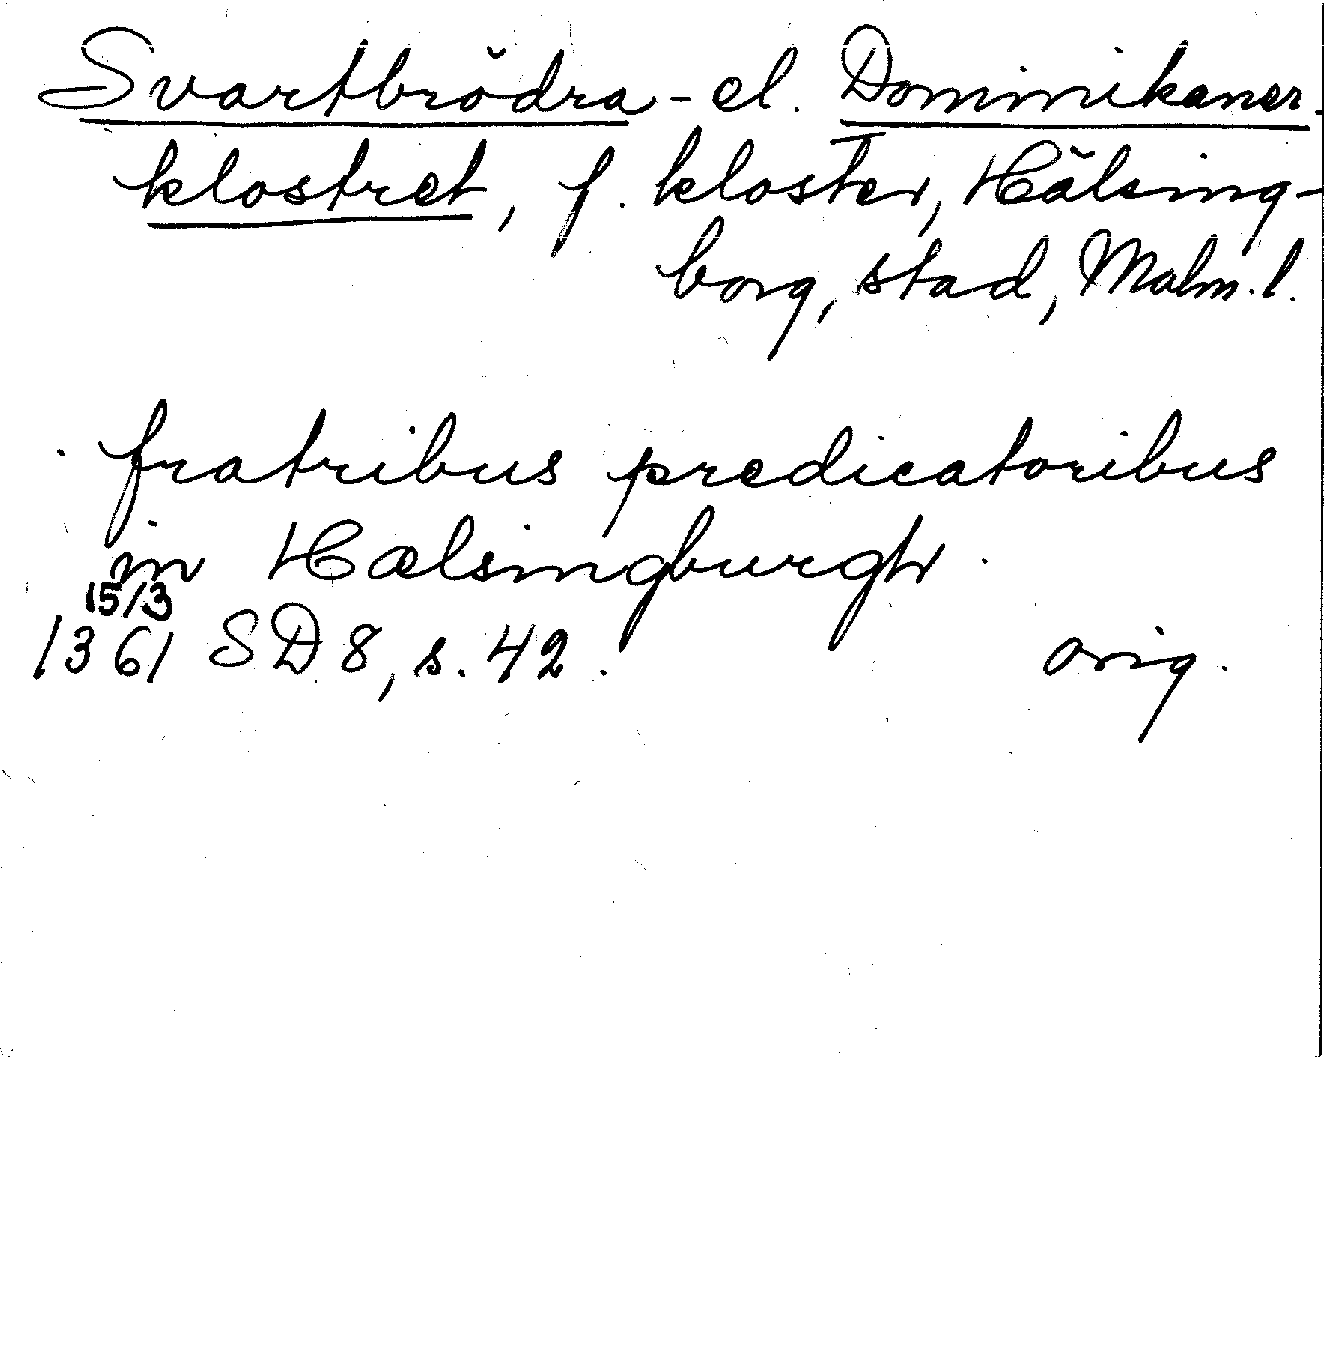 Svartbrödra- el. Dominikaner-
klostret, f. kloster, Hälsing-
borg, stad, Malm. l.
fratribus predicatoribus
in Hælsingburgh.
15/3
1361 SD 8, s. 42. orig.